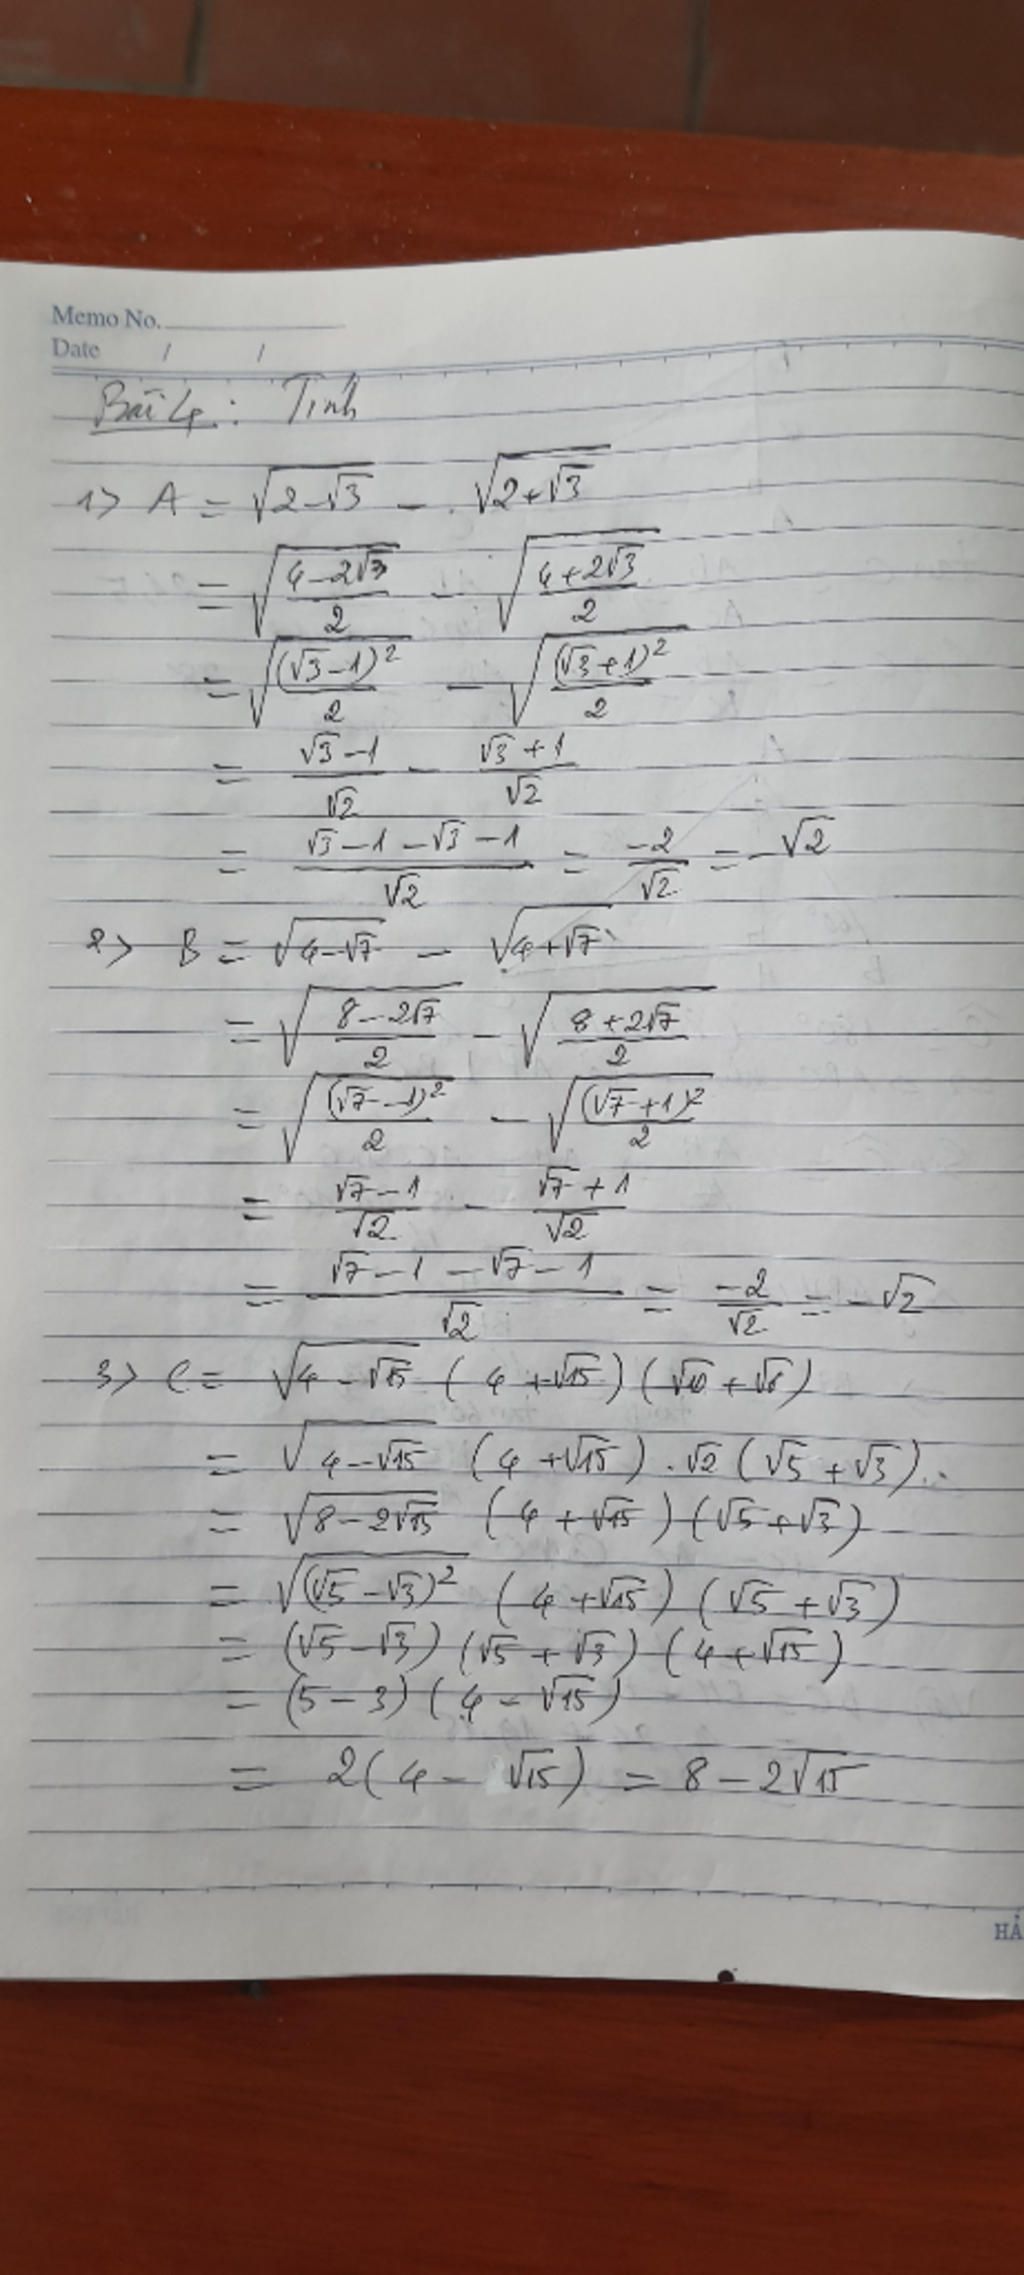 Memo No.
Date / /
Bài 4: Tính
1> A = √(2-√3) - √(2+√3)
= √((4-2√3)/2) - √((4+2√3)/2)
= √((√3-1)²/2) - √((√3+1)²/2)
= (√3-1)/√2 - (√3+1)/√2
= (√3-1-√3-1)/√2 = -2/√2 = -√2
2> B = √(4-√7) - √(4+√7)
= √((8-2√7)/2) - √((8+2√7)/2)
= √((√7-1)²/2) - √((√7+1)²/2)
= (√7-1)/√2 - (√7+1)/√2
= (√7-1-√7-1)/√2 = -2/√2 = -√2
3> C = √(4-√15) (4+√15)(√10+√6)
= √(4-√15) (4+√15).√2(√5+√3)
= √(8-2√15) (4+√15)(√5+√3)
= √((√5-√3)²) (4+√15)(√5+√3)
= (√5-√3)(√5+√3)(4+√15)
= (5-3)(4-√15)
= 2(4-√15) = 8-2√15
HẢ